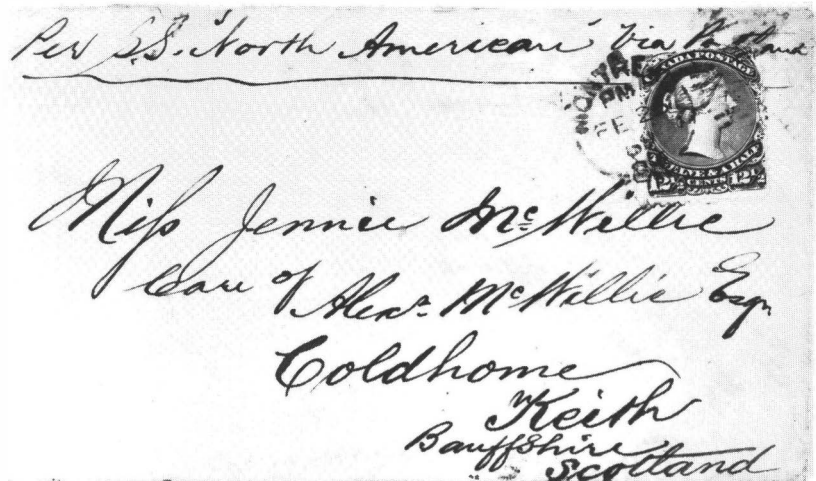 Per S.S. "North American" Via Portland
MONTRE
PM
FE
CANADA POSTAGE
TWELVE & A HALF
12½ CENTS 12½
Miss Jennie McWillie
Care of
Alexr. McWillie Esqr
Coldhome
Keith
Banffshire
Scotland